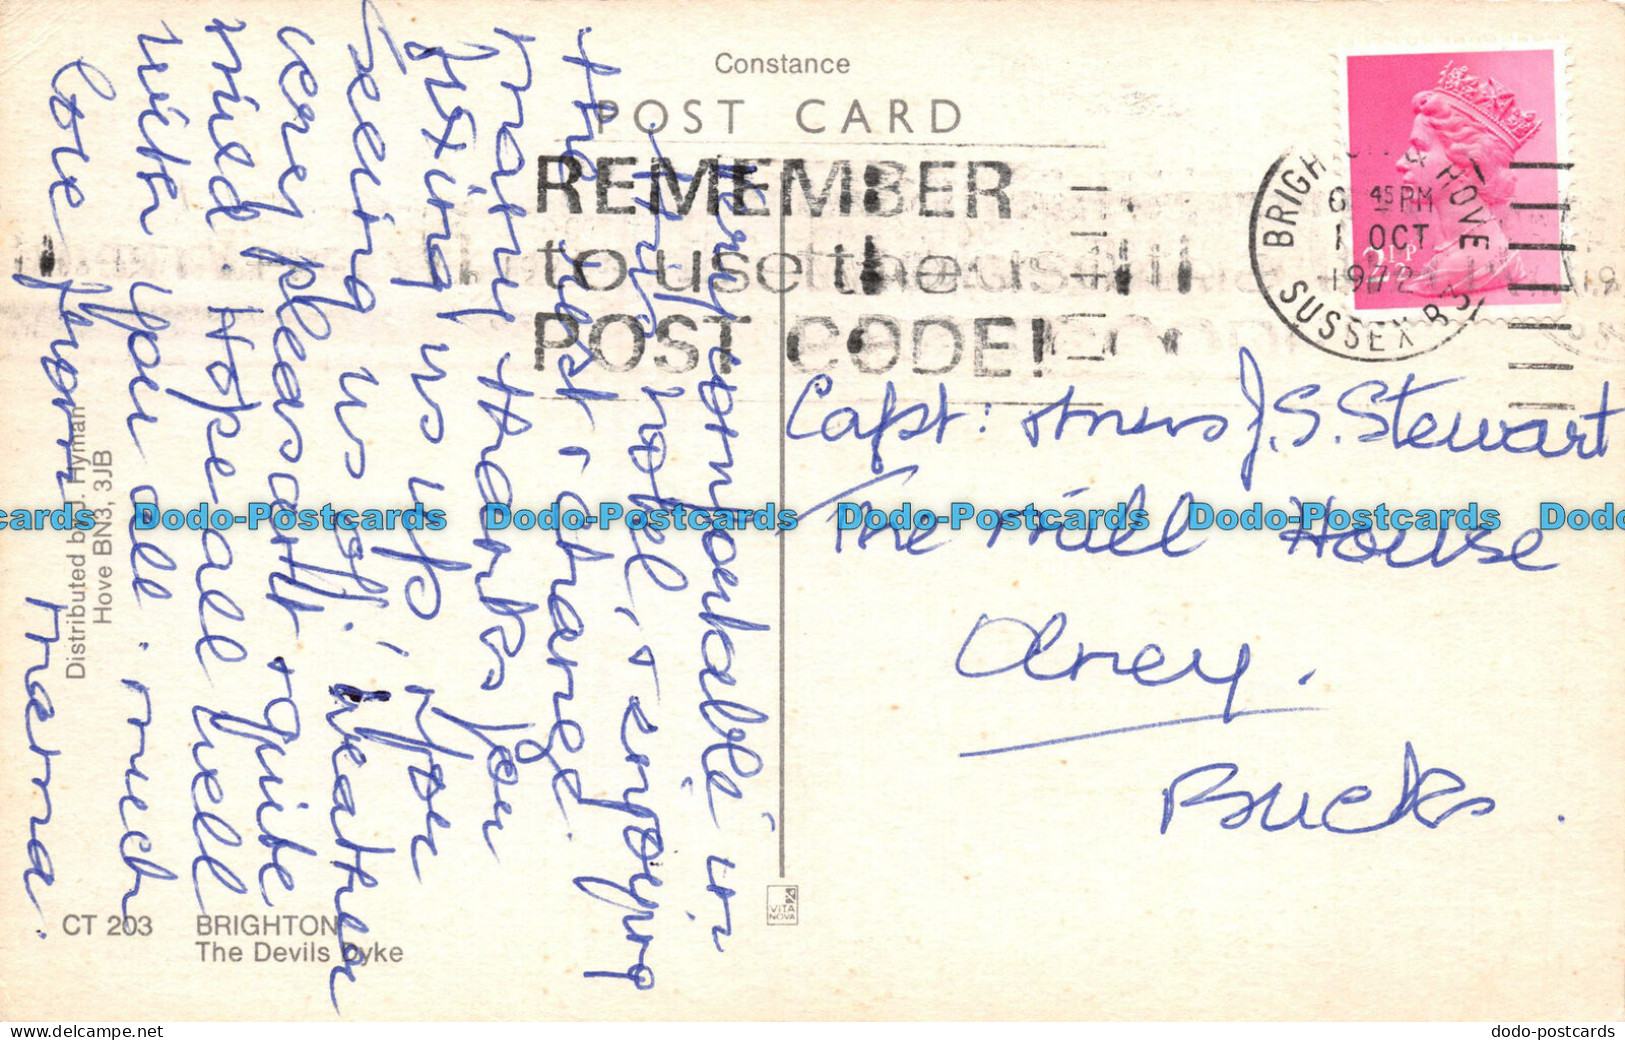 Constance
POST CARD
REMEMBER
to use the
POST CODE!
BRIGHTON & HOVE
6 45 PM
1 OCT
1972
SUSSEX
2½P
Very comfortable in
this hotel, & enjoying
the rest & change.
Many thanks for
fixing us up, & for
seeing us off! Weather
very pleasant & quite
mild. Hope all well
with you all. Much
love from Mama.
Capt: & Mrs J. S. Stewart
The Mill House
Olney.
Bucks.
Distributed by J. Hyman
Hove BN3, 3JB
VITA
NOVA
CT 203 BRIGHTON
The Devils Dyke
Dodo-Postcards Dodo-Postcards Dodo-Postcards Dodo-Postcards
dodo-postcards
dodo-postcards